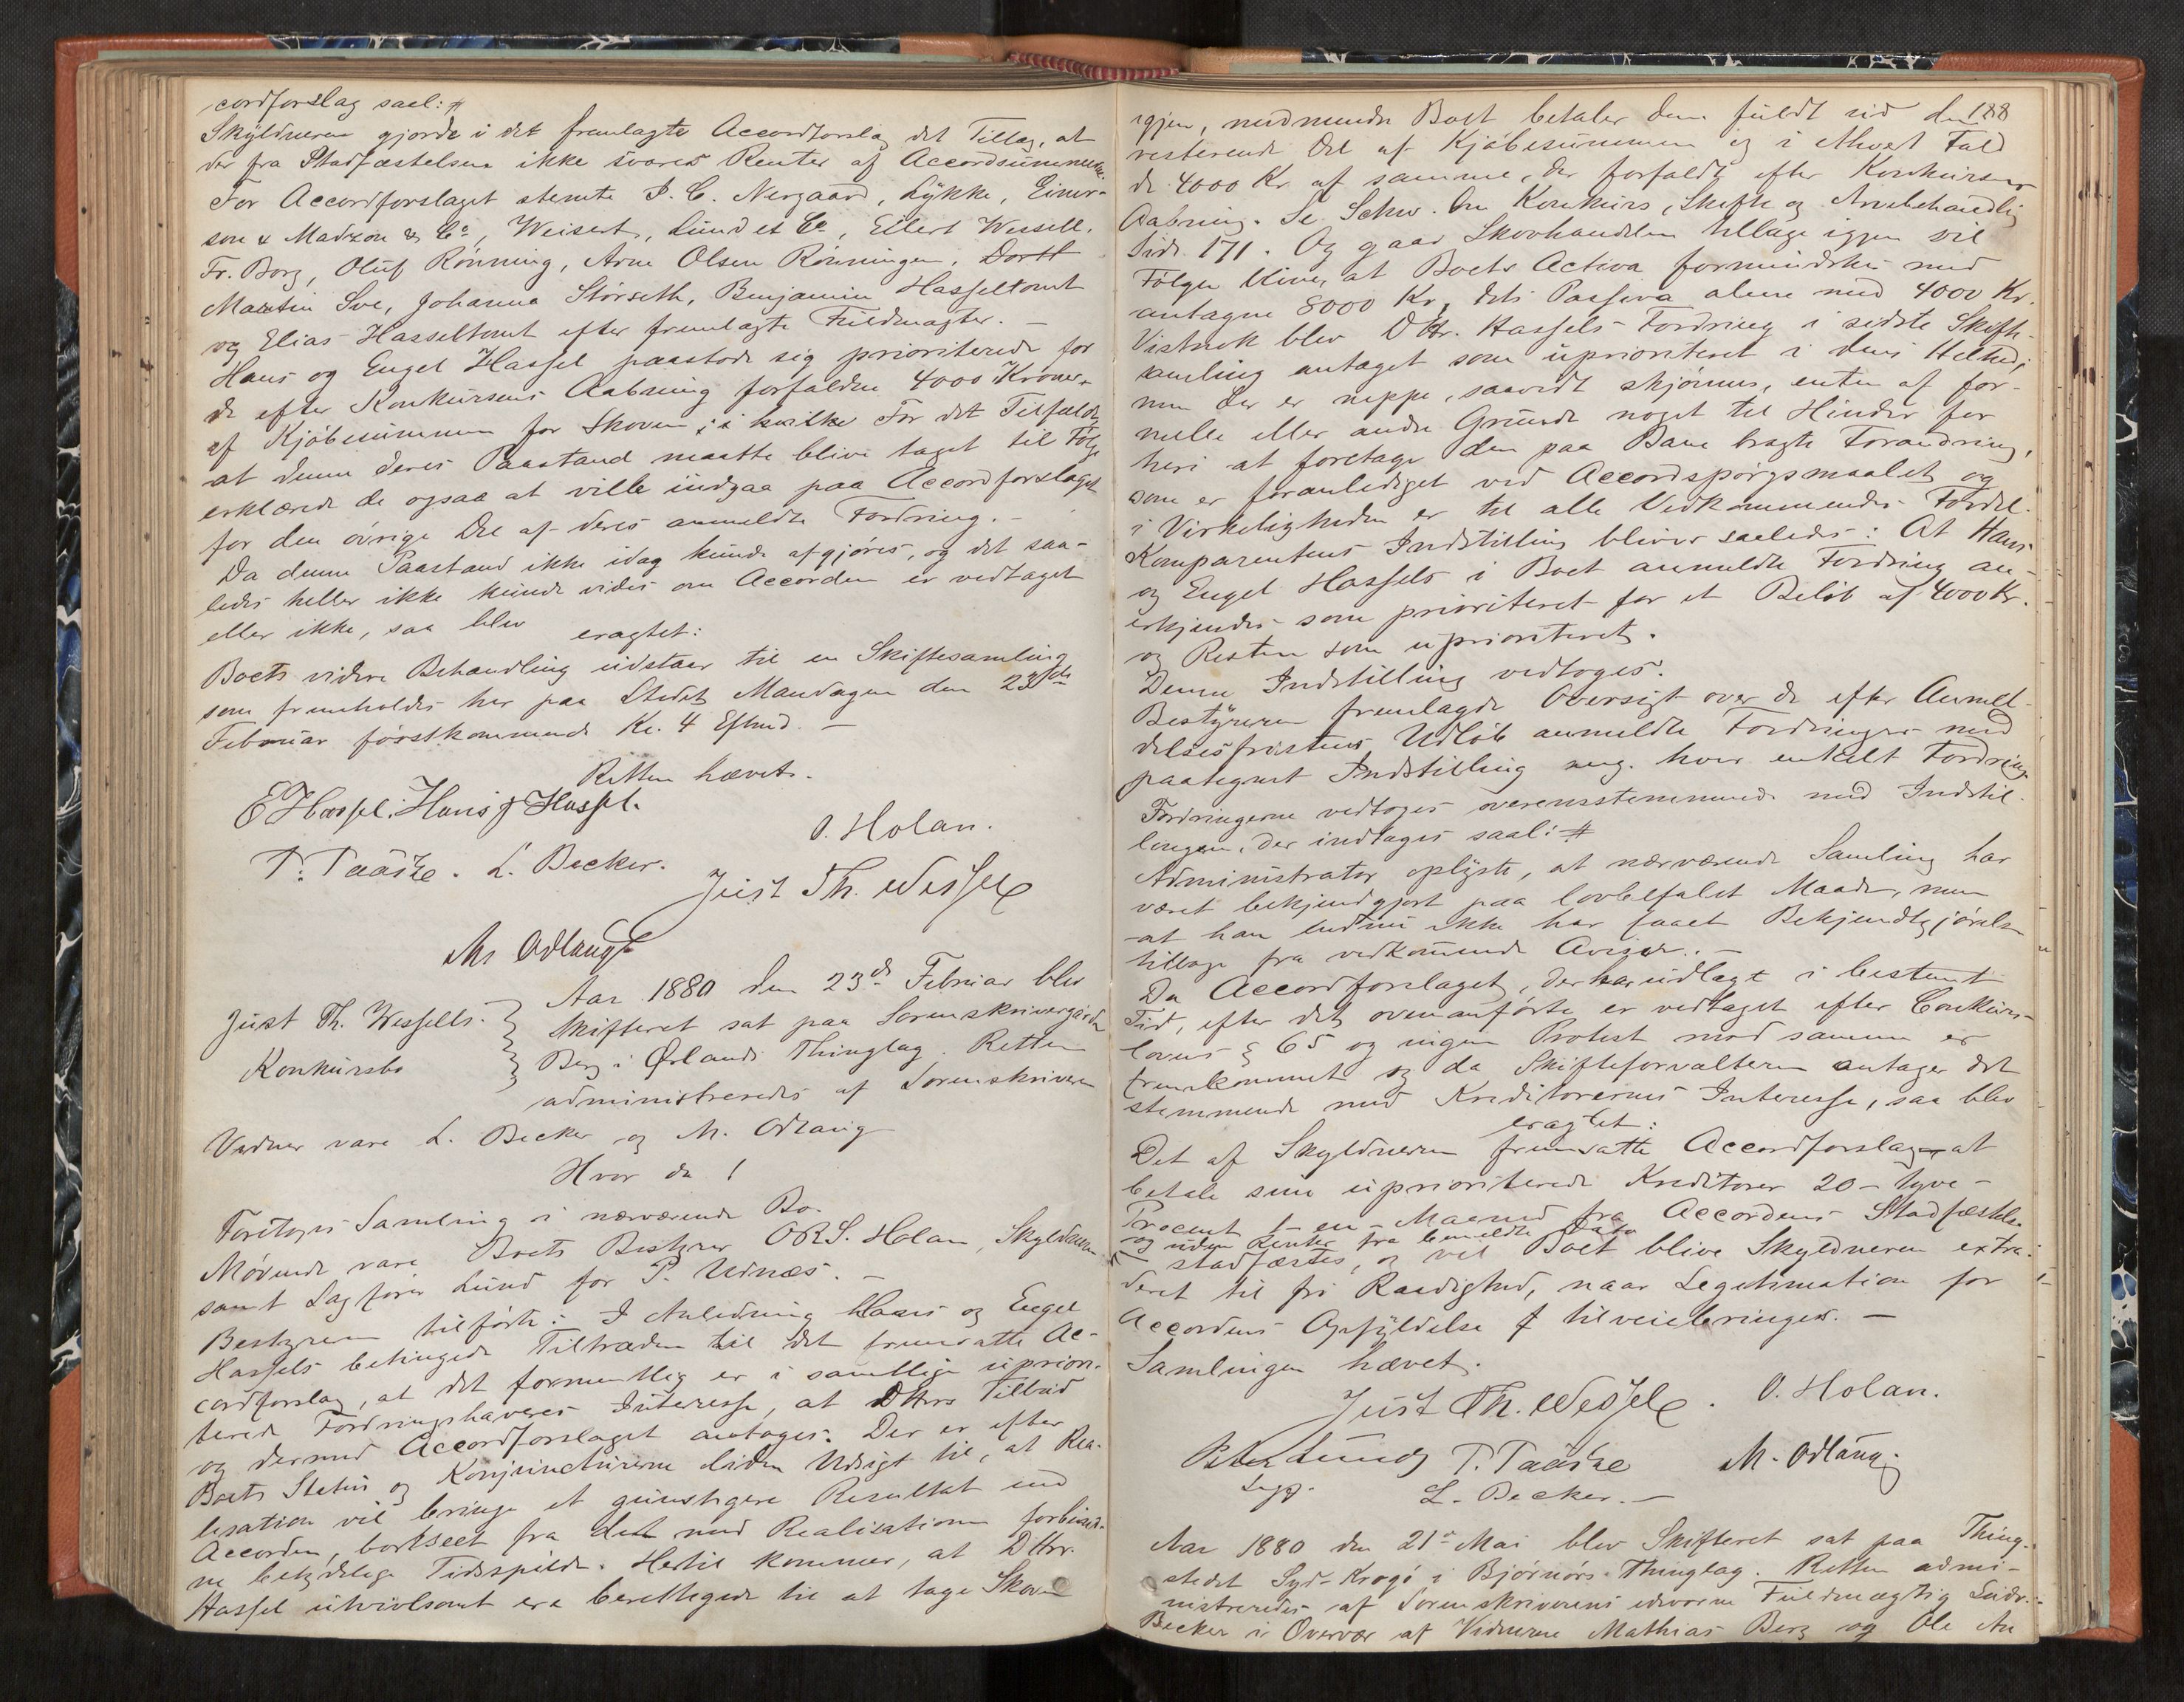 cordforslag saal: #
Skyldneren gjorde i det fremlagte Accordforslag det Tillæg, at
der fra Stadfæstelsen ikke svares Renter af Accordsummerne.
For Accordforslaget stemte J. C. Nergaard, Lykke, Einer-
son & Madzon & Co, Weisert, Lund et Co, Ellert Wessell,
Fr. Borg, Oluf Rönning, Arne Olsen Rönningen, Dorth
Martin Sve, Johanna Störseth, Benjamin Hasseltomt
og Elias Hasseltomt efter fremlagte Fuldmagter. —
Hans og Engel Hassel paastode sig prioriterede for
de efter Konkursens Aabning forfaldne 4000 Kroner
af Kjöbesummen for Skoven; i hvilke For det Tilfælde,
at denne deres Paastand maatte blive taget til Fölge
erklærede de ogsaa at ville indgaa paa Accordforslaget
for den övrige Del af deres anmeldte Fordring. —
Da denne Paastand ikke idag kunde afgjöres, og det saa-
ledes heller ikke kunde vides om Accorden er vedtaget
eller ikke, saa blev eragtet:
Boets videre Behandling udstaar til en Skiftesamling
som fremholdes her paa Stedet Mandagen den 23de
Februar förstkommende Kl. 4 Eftmd. —
Retten hævet.
E Hassel. Hans J Hassel.
O. Holan.
P. Taaske. L. Becker.
Just Th. Wessel
M. Odlaug
Just Th. Wessells Konkursbo
Aar 1880 den 23de Februar blev
Skifteret sat paa Sorenskrivergården
Berg i Ørlands Thinglag. Retten
administreredes af Sorenskriveren
Vidner vare L. Becker og M. Odlaug
Hvor da!
Foretoges Samling i nærværende Bo.
Mødende vare Boets Bestyrer ORS. Holan, Skyldneren
samt Sagförer Lund for P. Udnæs. —
Bestyreren tilförte: I Anledning Hans og Engel
Hassels betingede Tiltræden til det fremsatte Ac-
cordforslag, at det formentlig er i samtlige uprior-
terede Fordringshaveres Interesse, at DHrrs Tilbud
og dermed Accordforslaget antages. Der er efter
Boets Status og Konjuncturerne liden Udsigt til, at Rea-
lisation vil bringe et gunstigere Resultat end
Accorden, bortseet fra det med Realisationen forbund-
ne betydelige Tidsspilde. Hertil kommer, at DHrr.
Hassel utvivlsomt ere berettigede til at tage Skoven
188
igjen, medmindre Boet betaler dem fuldt ud den
resterende Del af Kjöbesummen og i ethvert Fald
de 4000 Kr af samme, der forfaldt efter Konkursens
Aabning. Se Schw. Om Konkurs, Skifte og Arvebehandlig
Side 171. Og gaar Skovhandelen tilbage igjen vil
Fölgen blive, at Boets Activa formindskes med
antagne 8000 Kr, dets Passiva alene med 4000 Kr.
Vistnok blev DHr. Hassels Fordring i sidste Skifte-
samling antaget som uprioriteret i dens Helhed;
men der er neppe, saavidt skjönnes, enten af for-
melle eller andre Grunde noget til Hinder for
heri at foretage den paa Bane bragte Forandring,
som er foranlediget ved Accordspörgsmaalet og
i Virkeligheden er til alle Vedkommendes Fordel.
Komparentens Indstilling bliver saaledes: At Hans
og Engel Hassels i Boet anmeldte Fordring an-
erkjendes som prioriteret for et Belöb af 4000 Kr.
og Resten som uprioriteret.
Denne Indstilling vedtoges.
Bestyreren fremlagde Oversigt over de efter Anmel-
delsesfristens Udlöb anmeldte Fordringer med
paategnet Indstilling ang. hver enkelt Fordring.
Fordringerne vedtoges overensstemmende med Indstil-
lingen, der indtages saal: #
Administrator oplyste, at nærværende Samling har
været bekjendtgjort paa lovbefalet Maade, men
at han endnu ikke har faaet Bekjendtgjörelsen
tilbage fra vedkommende Aviser. —
Da Accordforslaget, der har udlagt i bestemt
Tid, efter det ovenanförte er vedtaget efter Conkurs-
lovens § 65 og ingen Protest mod samme er
fremkommet og da Skifteforvalteren antager det
stemmende med Kreditorernes Interesse, saa blev
eragtet:
Det af Skyldneren fremsatte Accordforslag at
betale sine uprioriterede Kreditorer 20 - tyve -
Procent 1 - en - Maaned fra Accordens Stadfæstelse
og uden Renter fra bemeldte Dato
stadfæstes, og vil Boet blive Skyldneren extra-
deret til fri Raadighed, naar Legitimation for
Accordens Opfyldelse tilveiebringes. —
Samlingen hævet.
Just Th. Wessel. O. Holan.
Peter Lund P. Taaske M. Odlaug.
Sagf. L. Becker. —
Aar 1880 den 21de Mai blev Skifteret sat paa Thing-
stedet Syd-Krogö i Bjørnörs Thinglag. Retten admi-
nistreredes af Sorenskriverens edsvorne Fuldmægtig Ludv.
Becker i Overvær af Vidnerne Mathias Berg og Ole An